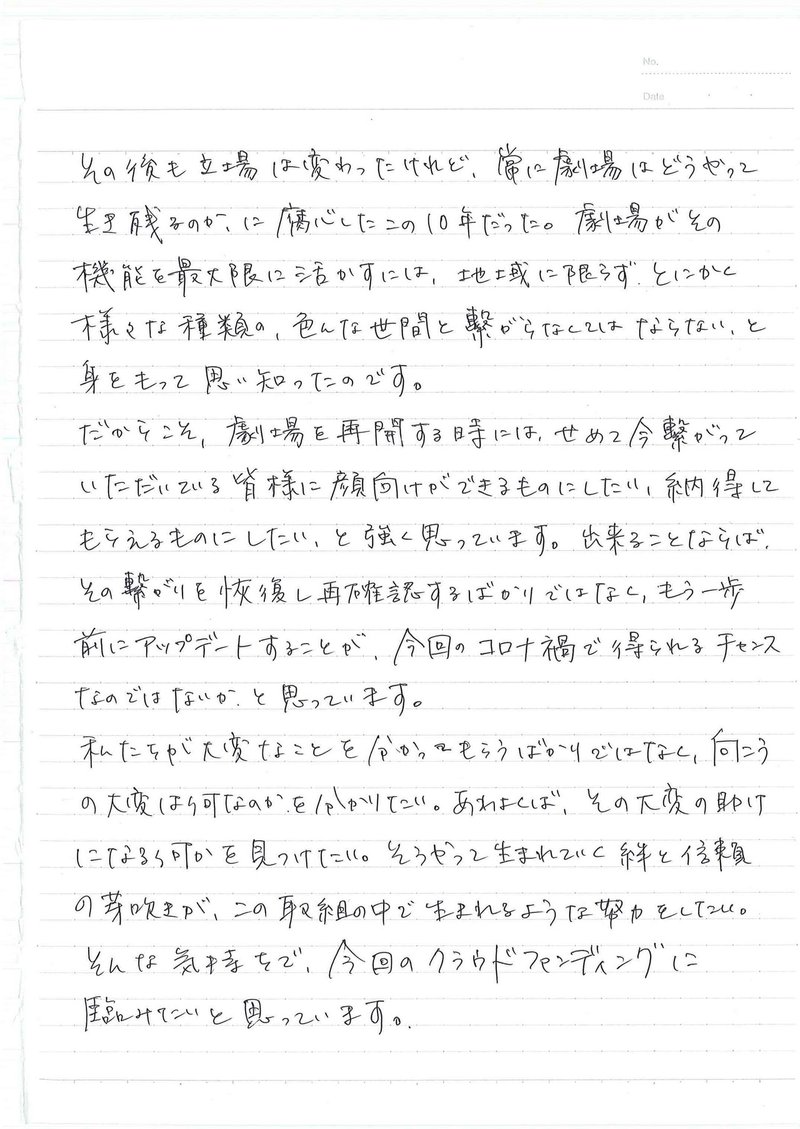 No.
Date
その後も立場は変わったけれど、常に劇場はどうやって
生き残るのか、に腐心したこの10年だった。劇場がその
機能を最大限に活かすには、地域に限らず、とにかく
様々な種類の、色んな世間と繋がらなくてはならない、と
身をもって思い知ったのです。
だからこそ、劇場を再開する時には、せめて今繋がって
いただいている皆様に顔向けができるものにしたい、納得して
もらえるものにしたい、と強く思っています。出来ることならば、
その繋がりを恢復し再確認するばかりではなく、もう一歩
前にアップデートすることが、今回のコロナ禍で得られるチャンス
なのではないか、と思っています。
私たちが大変なことを分かってもらうばかりではなく、向こう
の大変は何なのか、を分かりたい。あわよくば、その大変の助け
になる何かを見つけたい。そうやって生まれていく絆と信頼
の芽吹きが、この取組の中で生まれるような努力をしたい。
そんな気持ちで、今回のクラウドファンディングに
臨みたいと思っています。